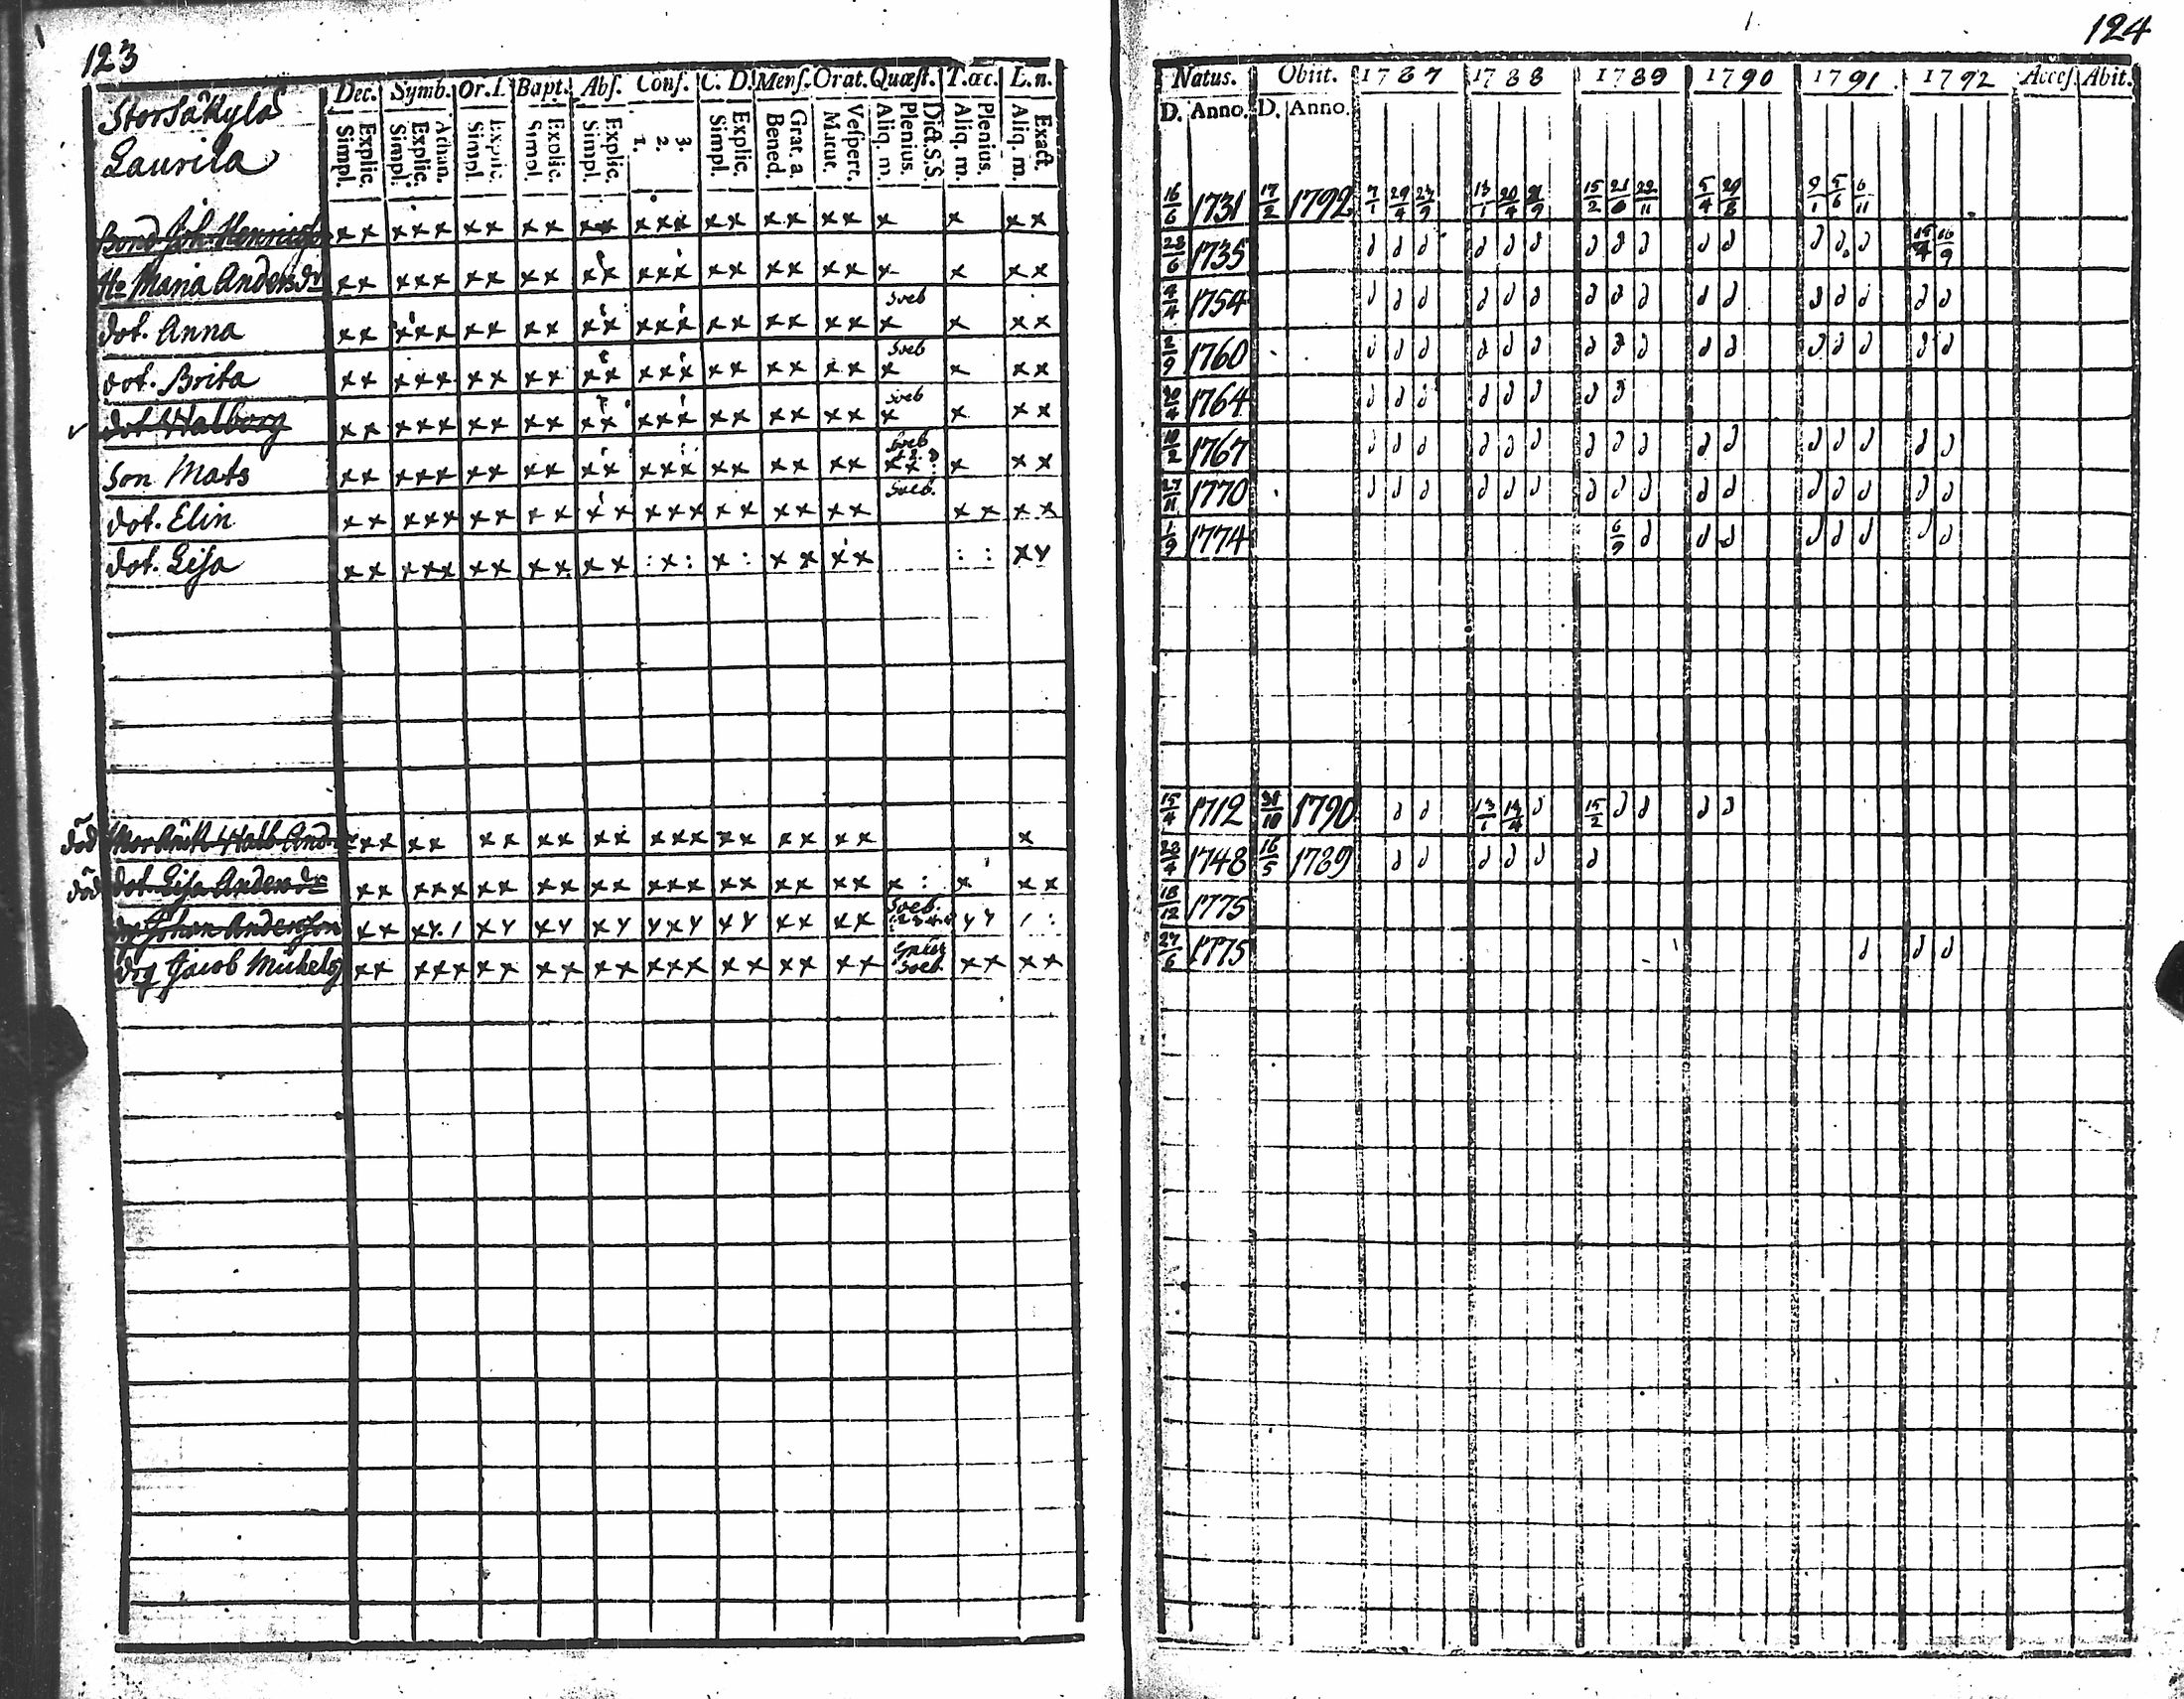 123
Dec. Symb. Or. I. Bapt. Abſ. Conf. C. D. Menſ. Orat. Quæſt. T. œc. L. n.
Simpl. Explic. Simpl. Explic. Athan. Simpl. Explic. Simpl. Explic. Simpl. Explic. 1. 2. 3. Simpl. Explic. Bened. Grat. a. Matut. Veſpert. Aliq. m. Plenius. Dict. S.S. Aliq. m. Plenius. Aliq. m. Exact.
StorSäkylä
Laurila
Bond Joh. Henricss.
Ho Maria Anders dr
dot. Anna
Sveb
dot. Brita
Sveb
dot Walborg
Sveb
Son Mats
Sveb
dot. Elin
Sveb.
dot. Lisa
död Mor Änk. Walb. And.
död dot. Lisa Anders dr
Johan Andersson
Sveb.
drg Jacob Mickelss
Sveb
124
Natus. Obiit. 1787 1788 1789 1790 1791 1792 Acceſ. Abit.
D. Anno. D. Anno.
16/6 1731 17/2 1792 7/1 29/4 23/9 13/1 20/4 21/9 15/2 21/6 22/11 5/4 29/8 9/1 5/6 6/11
28/6 1735 15/4 16/9
4/4 1754
2/9 1760
30/4 1764
10/2 1767
27/11 1770
1/9 1774 6/9
15/4 1712 31/10 1790 13/1 14/4 15/2
28/4 1748 16/5 1789
18/12 1775
27/6 1775